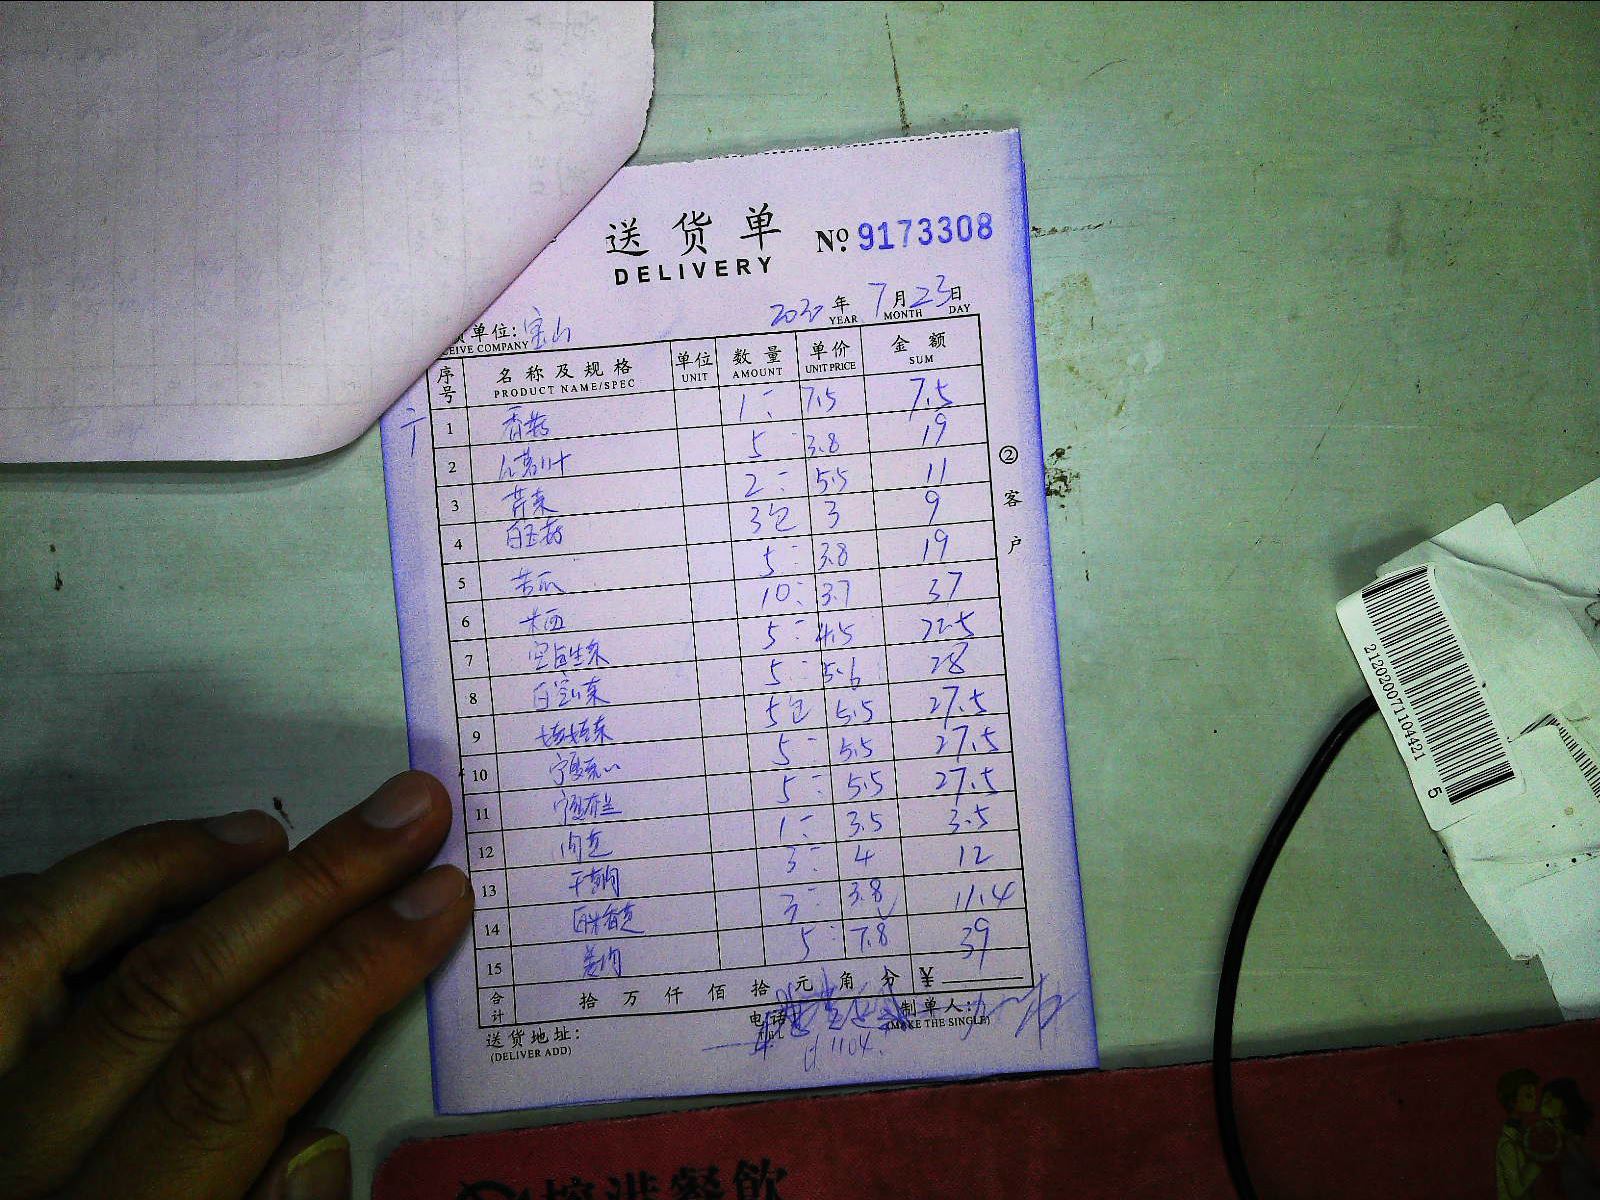 送货单
DELIVERY
No. 9173308
2020年 7月23日
YEAR MONTH DAY
单位: 宝山
CEIVE COMPANY
序号 名称及规格 单位 数量 单价 金额
PRODUCT NAME/SPEC UNIT AMOUNT UNIT PRICE SUM
1 香菇 1 7.5 7.5
2 5 3.8 19
3 芹菜 2 5.5 11
4 白玉菇 3包 3 9
5 苦瓜 5 3.8 19
6 10 3.7 37
7 5 4.5 22.5
8 5 5.6 28
9 娃娃菜 5包 5.5 27.5
10 宁夏菜心 5 5.5 27.5
11 5 5.5 27.5
12 1 3.5 3.5
13 3 4 12
14 3 3.8 11.4
15 姜肉 5 7.8 39
合计 拾 万 仟 佰 拾 元 角 分 ¥
送货地址: 电话 制单人:
(DELIVER ADD) TEL (MAKE THE SINGLE)
1104.
②客户
2120200711104421
5
餐飲